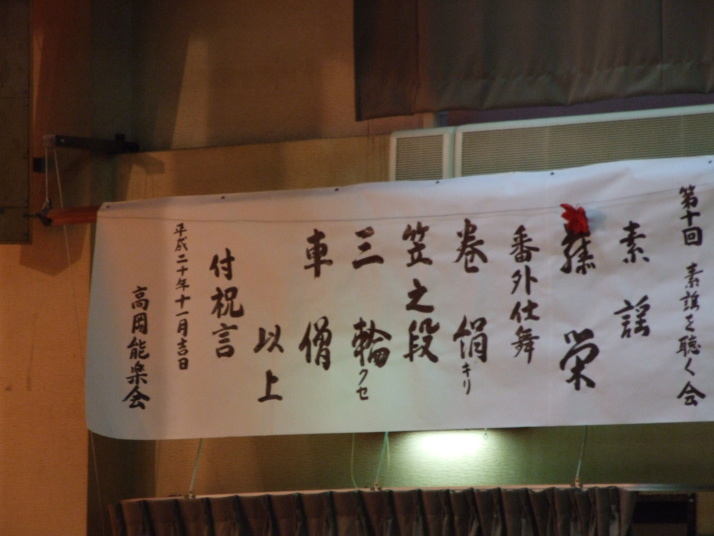 第十回 素謡を聴く会
素謡
藤栄
番外仕舞
巻絹キリ
笠之段
三輪クセ
車僧
以上
付祝言
平成二十年十一月吉日
高岡能楽会